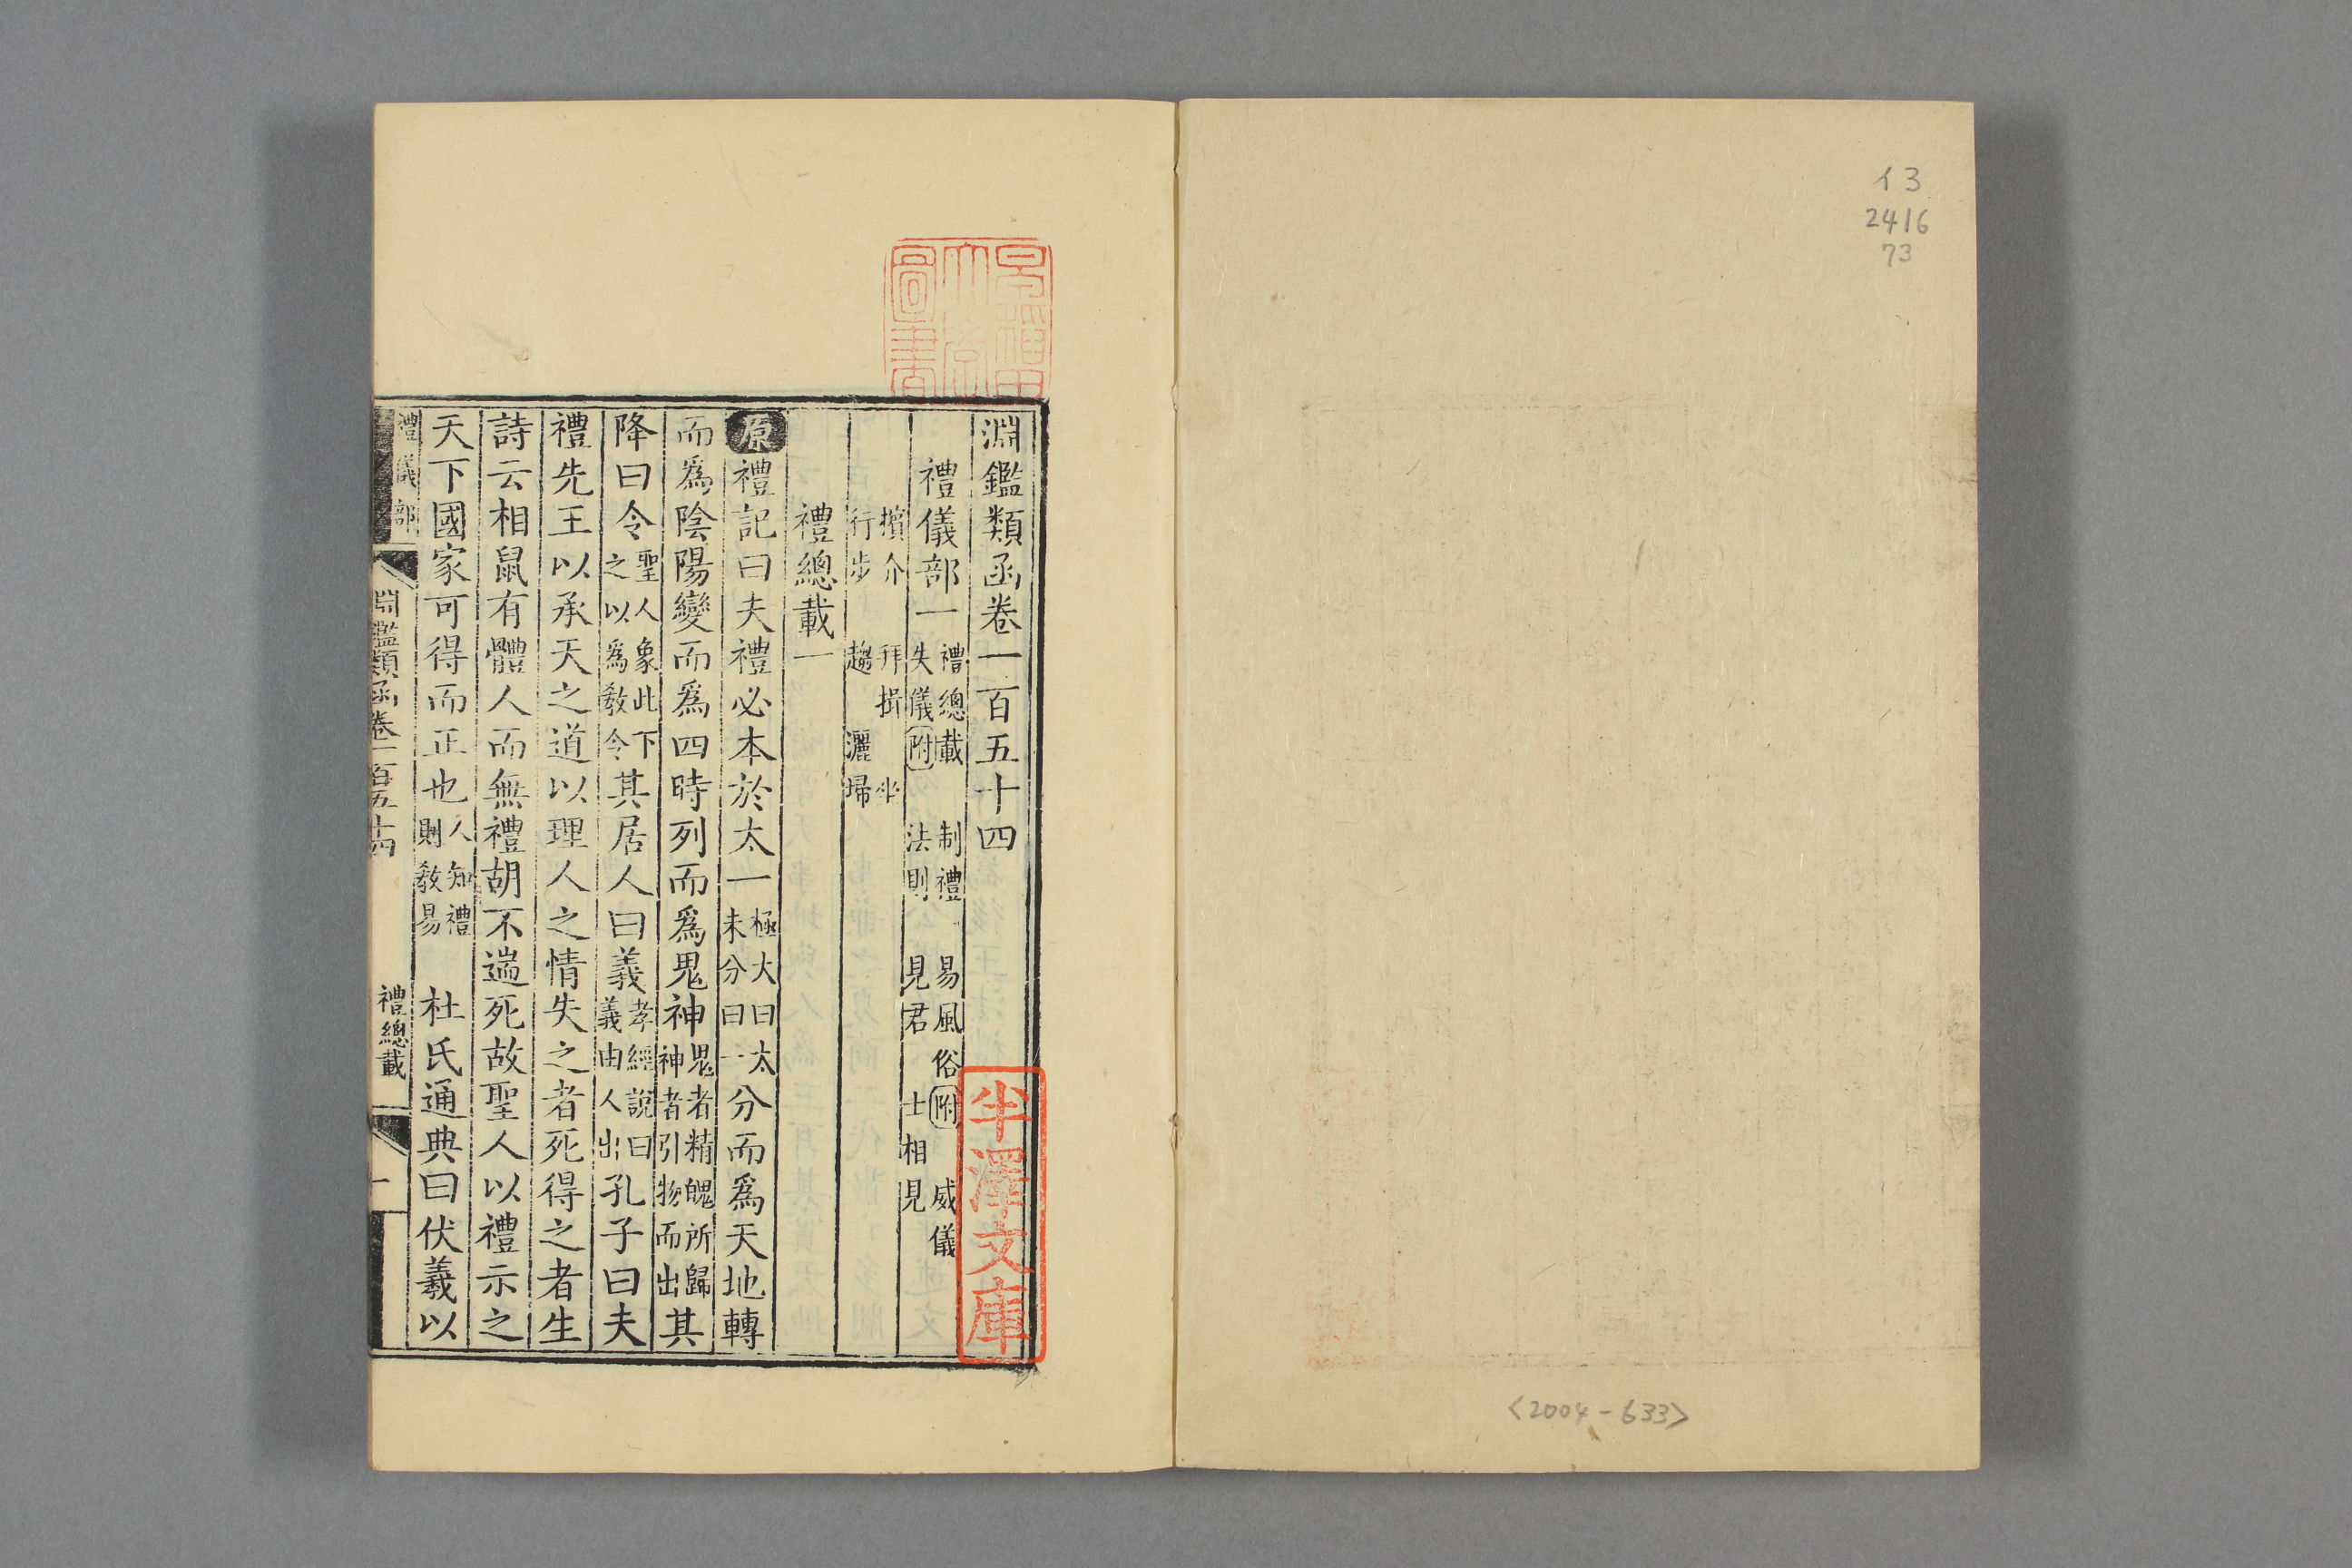 イ3
2416
73
<2004-633>
淵鑑類函卷一百五十四
禮儀部一 禮總載 制禮 易風俗附 威儀
失儀附 法則 見君 士相見
擯介 拜揖 坐
行步 趨 灑埽
禮總載一
原禮記曰夫禮必本於太一極大曰太未分曰一分而爲天地轉
而爲陰陽變而爲四時列而爲鬼神鬼者精魄所歸神者引物而出其
降曰令聖人象此下之以爲教令其居人曰義孝經說曰義由人出孔子曰夫
禮先王以承天之道以理人之情失之者死得之者生
詩云相鼠有體人而無禮胡不遄死故聖人以禮示之
天下國家可得而正也人知禮則教易 杜氏通典曰伏羲以
禮儀部
淵鑑類函卷一百五十四
禮總載
一
半澤文庫
圖書